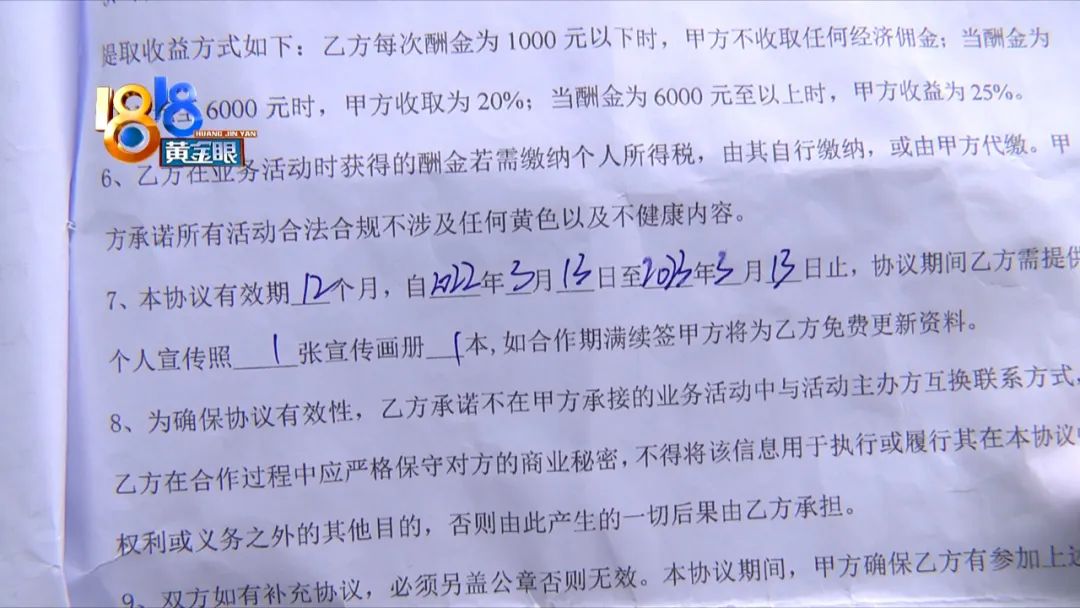 提取收益方式如下：乙方每次酬金为1000元以下时，甲方不收取任何经济佣金；当酬金为
6000元时，甲方收取为20%；当酬金为6000元至以上时，甲方收益为25%。
1818
HUANG JIN YAN
黄金眼
6、乙方在业务活动时获得的酬金若需缴纳个人所得税，由其自行缴纳，或由甲方代缴。甲
方承诺所有活动合法合规不涉及任何黄色以及不健康内容。
7、本协议有效期12个月，自2022年3月13日至2023年3月13日止，协议期间乙方需提供
个人宣传照1张宣传画册1本,如合作期满续签甲方将为乙方免费更新资料。
8、为确保协议有效性，乙方承诺不在甲方承接的业务活动中与活动主办方互换联系方式，
乙方在合作过程中应严格保守对方的商业秘密,不得将该信息用于执行或履行其在本协议
权利或义务之外的其他目的，否则由此产生的一切后果由乙方承担。
9、双方如有补充协议，必须另盖公章否则无效。本协议期间，甲方确保乙方有参加上